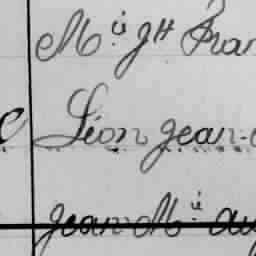 M.ie Jh Fran
Léon Jean-
Jean M.ie Au